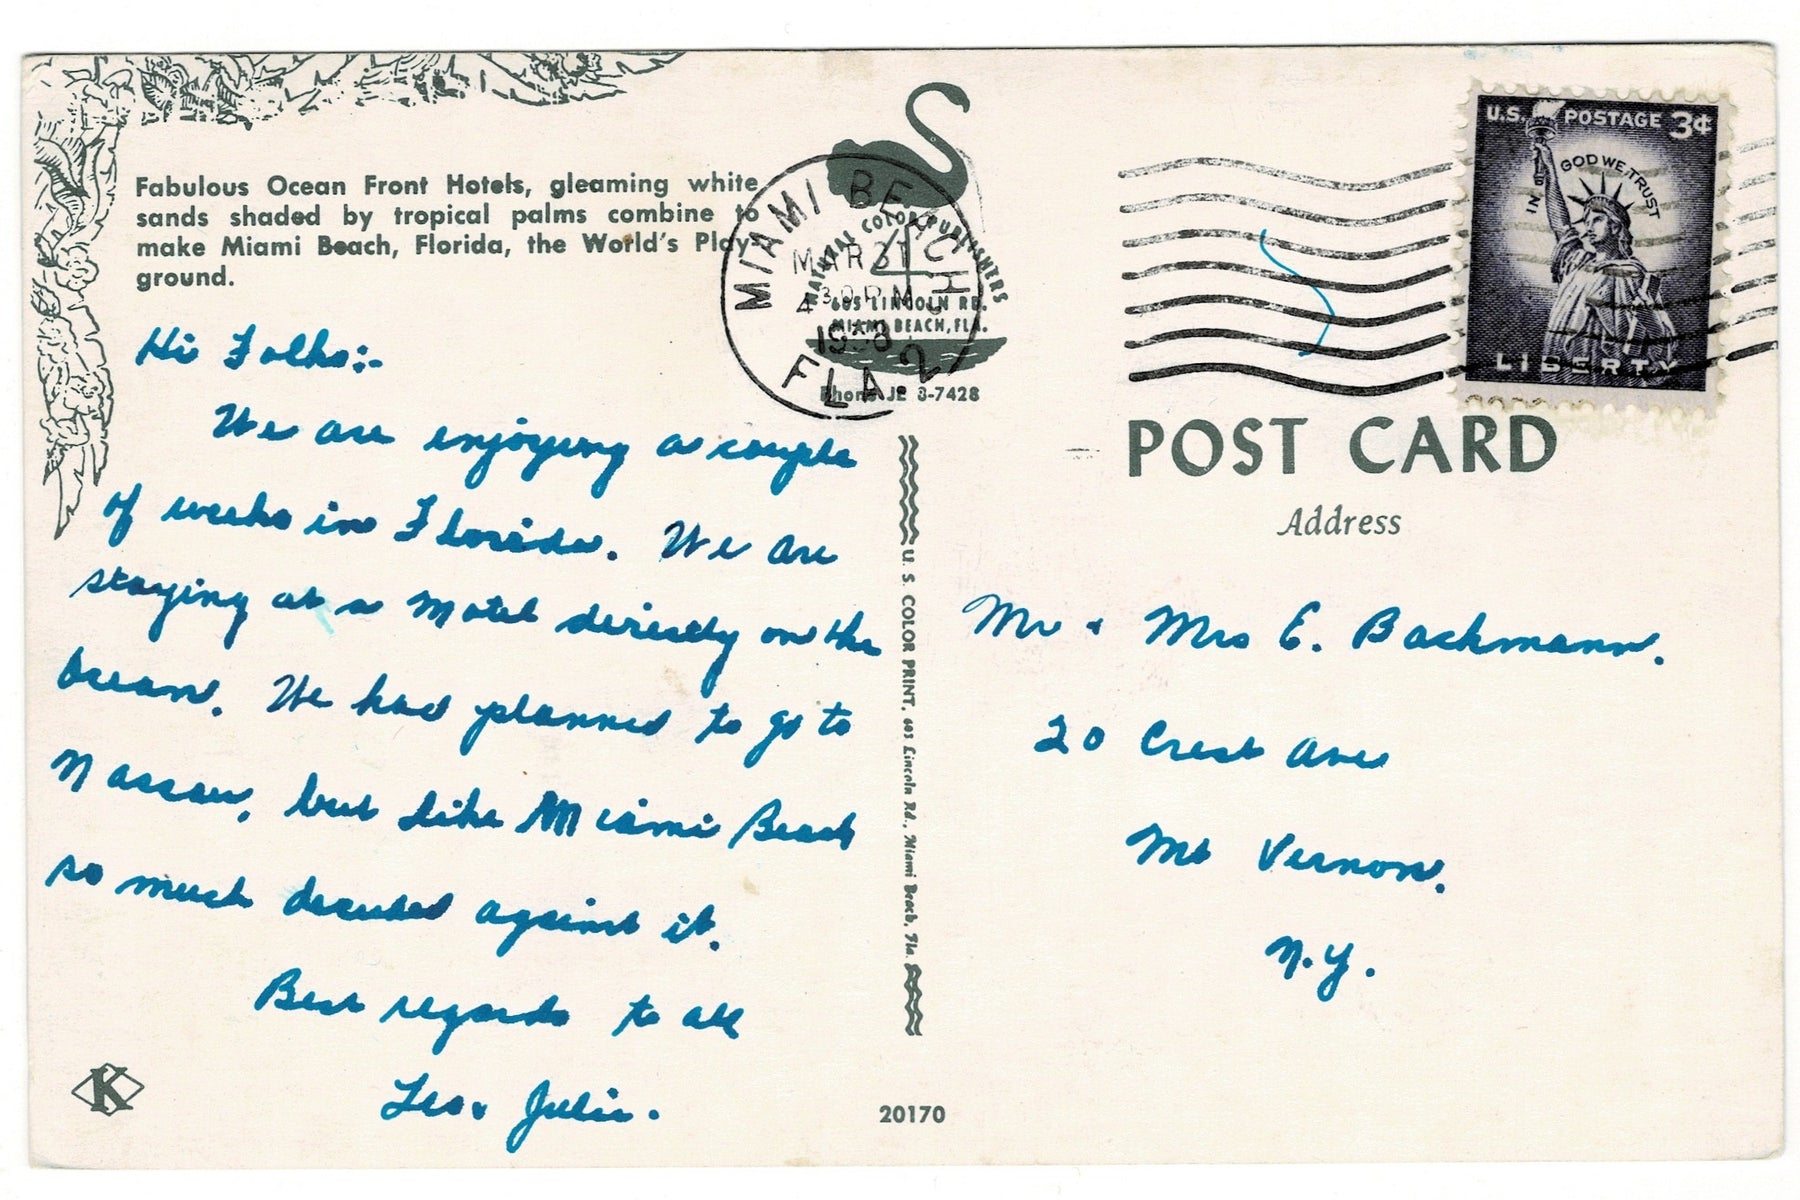 Fabulous Ocean Front Hotels, gleaming white
sands shaded by tropical palms combine to
make Miami Beach, Florida, the World's Play-
ground.
Hi Folks:-
We are enjoying a couple
of weeks in Florida. We are
staying at a Motel directly on the
Ocean. We had planned to go to
Nassau, but like Miami Beach
so much decided against it.
Best regards to all
Leo & Julie.
MIAMI BEACH
MAR 31
4 30 PM
1958
FLA. 2
NATURAL COLOR PUBLISHERS
605 LINCOLN RD.
MIAMI BEACH, FLA.
Phone JE 8-7428
U. S. COLOR PRINT, 605 Lincoln Rd., Miami Beach, Fla.
U.S. POSTAGE 3¢
IN GOD WE TRUST
LIBERTY
POST CARD
Address
Mr & Mrs E. Bachmann.
20 Crest Ave
Mt Vernon.
N.Y.
K
20170